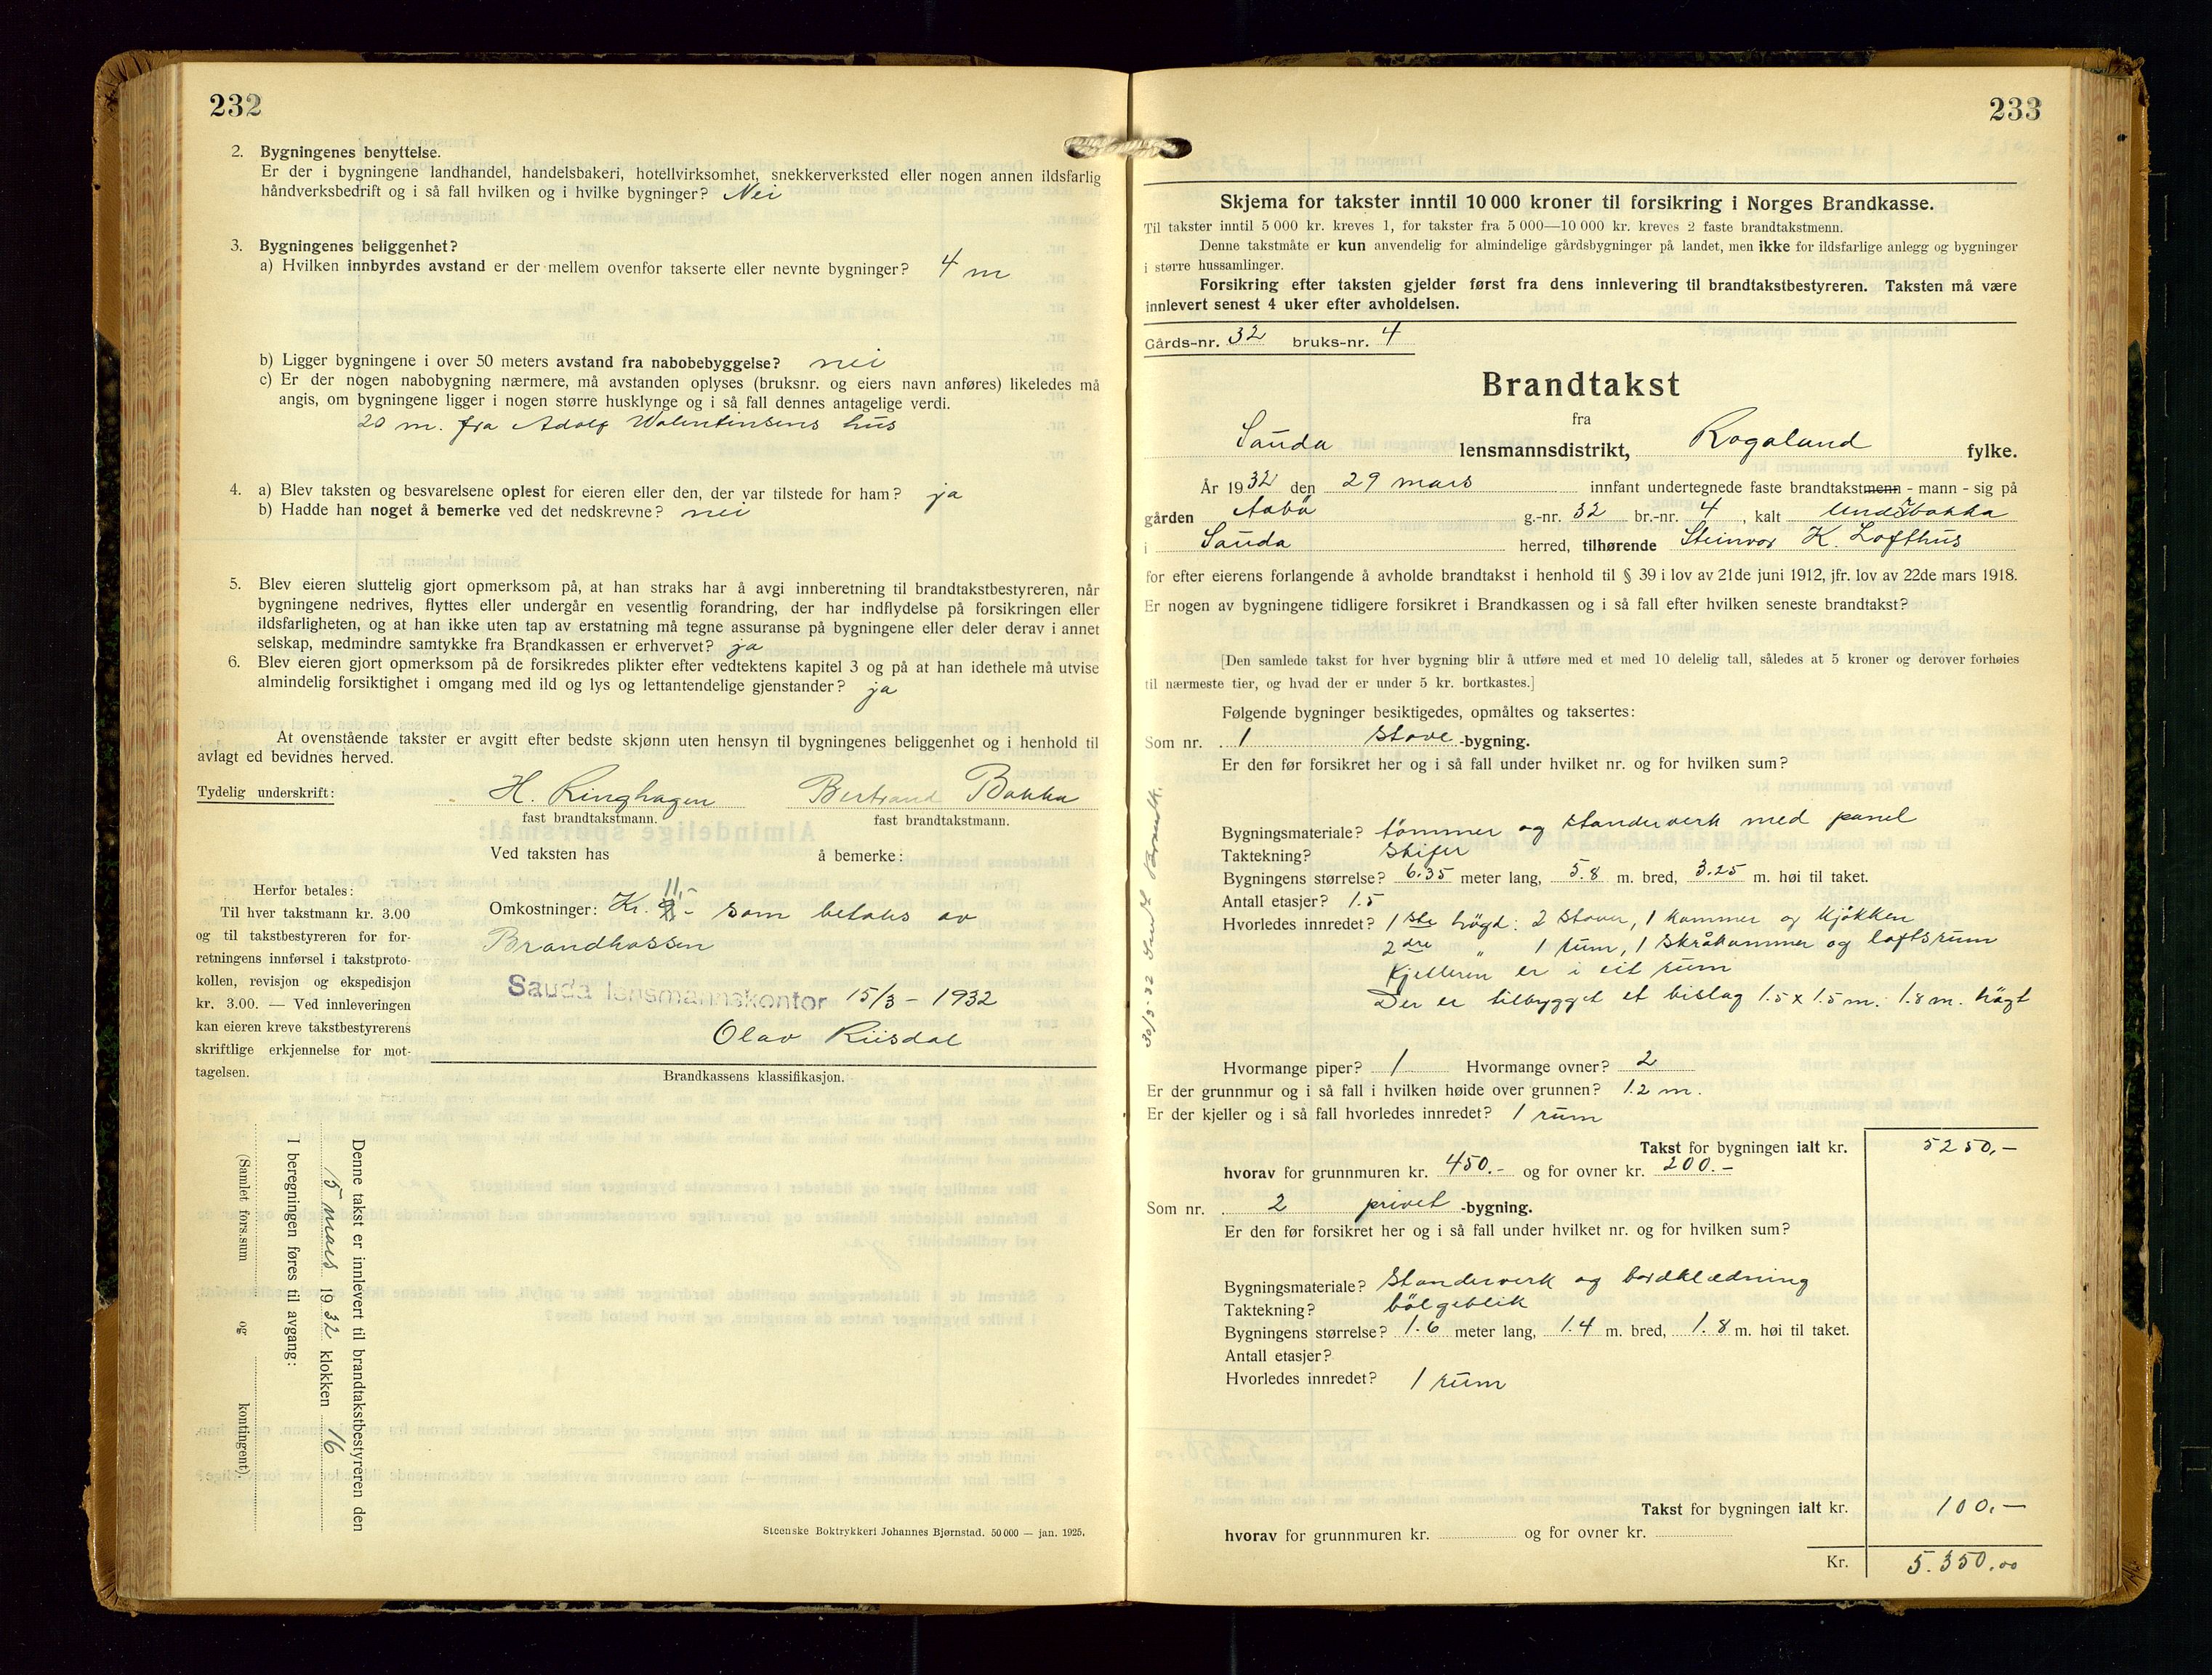 232
2. Bygningenes benyttelse.
Er der i bygningene landhandel, handelsbakeri, hotellvirksomhet, snekkerverksted eller nogen annen ildsfarlig
håndverksbedrift og i så fall hvilken og i hvilke bygninger? Nei
3. Bygningenes beliggenhet?
a) Hvilken innbyrdes avstand er der mellem ovenfor takserte eller nevnte bygninger? 4 m
b) Ligger bygningene i over 50 meters avstand fra nabobebyggelse? nei
c) Er der nogen nabobygning nærmere, må avstanden oplyses (bruksnr. og eiers navn anføres) likeledes må
angis, om bygningene ligger i nogen større husklynge og i så fall dennes antagelige verdi.
20 m. fra Adolf Walentinsens hus
4. a) Blev taksten og besvarelsene oplest for eieren eller den, der var tilstede for ham? ja
b) Hadde han noget å bemerke ved det nedskrevne? nei
5. Blev eieren sluttelig gjort opmerksom på, at han straks har å avgi innberetning til brandtakstbestyreren, når
bygningene nedrives, flyttes eller undergår en vesentlig forandring, der har indflydelse på forsikringen eller
ildsfarligheten, og at han ikke uten tap av erstatning må tegne assuranse på bygningene eller deler derav i annet
selskap, medmindre samtykke fra Brandkassen er erhvervet? ja
6. Blev eieren gjort opmerksom på de forsikredes plikter efter vedtektens kapitel 3 og på at han idethele må utvise
almindelig forsiktighet i omgang med ild og lys og lettantendelige gjenstander? ja
At ovenstående takster er avgitt efter bedste skjønn uten hensyn til bygningenes beliggenhet og i henhold til
avlagt ed bevidnes herved.
Tydelig underskrift: H. Ringhagen Bertrand Bakka
fast brandtakstmann. fast brandtakstmann.
Ved taksten has å bemerke:
Herfor betales:
Til hver takstmann kr. 3.00
og til takstbestyreren for for-
retningens innførsel i takstproto-
kollen, revisjon og ekspedisjon
kr. 3.00. — Ved innleveringen
kan eieren kreve takstbestyrerens
skriftlige erkjennelse for mot-
tagelsen.
11,-
Omkostninger: Kr. - som betales av
Brandkassen
Sauda lensmannskontor 15/3 - 1932
Olav Riisdal
Brandkassens klassifikasjon.
Denne takst er innlevert til brandtakstbestyreren den
15 mars 1932 klokken 16
I beregningen føres til avgang:
(Samlet fors.sum og kontingent).
Steenske Boktrykkeri Johannes Bjørnstad. 50 000 — jan. 1925.
233
Skjema for takster inntil 10 000 kroner til forsikring i Norges Brandkasse.
Til takster inntil 5 000 kr. kreves 1, for takster fra 5 000—10 000 kr. kreves 2 faste brandtakstmenn.
Denne takstmåte er kun anvendelig for almindelige gårdsbygninger på landet, men ikke for ildsfarlige anlegg og bygninger
i større hussamlinger.
Forsikring efter taksten gjelder først fra dens innlevering til brandtakstbestyreren. Taksten må være
innlevert senest 4 uker efter avholdelsen.
Gårds-nr. 32 bruks-nr. 4
Brandtakst
fra
Sauda lensmannsdistrikt, Rogaland fylke.
År 1932 den 29 mars innfant undertegnede faste brandtakstmenn - mann - sig på
gården Aabö g.-nr. 32 br.-nr. 4, kalt
i Sauda herred, tilhørende Steinvor K. Lofthus
for efter eierens forlangende å avholde brandtakst i henhold til § 39 i lov av 21de juni 1912, jfr. lov av 22de mars 1918.
Er nogen av bygningene tidligere forsikret i Brandkassen og i så fall efter hvilken seneste brandtakst?
[Den samlede takst for hver bygning blir å utføre med et med 10 delelig tall, således at 5 kroner og derover forhøies
til nærmeste tier, og hvad der er under 5 kr. bortkastes.]
Følgende bygninger besiktigedes, opmåltes og taksertes:
Som nr. 1 Stove -bygning.
Er den før forsikret her og i så fall under hvilket nr. og for hvilken sum?
Bygningsmateriale? tömmer og standerverk med panel
Taktekning? Skifer
Bygningens størrelse? 6.35 meter lang, 5.8 m. bred, 3.25 m. høi til taket.
Antall etasjer? 1.5
Hvorledes innredet? 1ste högd: 2 stover, 1 kammer og kjøkken
2dre " 1 rum, 1 skråkammer og loftsrum
Kjelleren er i eit rum
Der er tilbygget et bislag 1.5 x 1.5 m. 1.8 m. högt
30/3-32 Sendt Brandk.
Hvormange piper? 1 Hvormange ovner? 2
Er der grunnmur og i så fall i hvilken høide over grunnen? 1.2 m.
Er der kjeller og i så fall hvorledes innredet? 1 rum
Takst for bygningen ialt kr. 5250,-
hvorav for grunnmuren kr. 450.- og for ovner kr. 200.-
Som nr. 2 privet -bygning.
Er den før forsikret her og i så fall under hvilket nr. og for hvilken sum?
Bygningsmateriale? Standerverk og bordklædning
Taktekning? bölgeblik
Bygningens størrelse? 1.6 meter lang, 1.4 m. bred, 1.8 m. høi til taket.
Antall etasjer?
Hvorledes innredet? 1 rum
Takst for bygningen ialt kr. 100.-
hvorav for grunnmuren kr. og for ovner kr.
Kr. 5.350.00